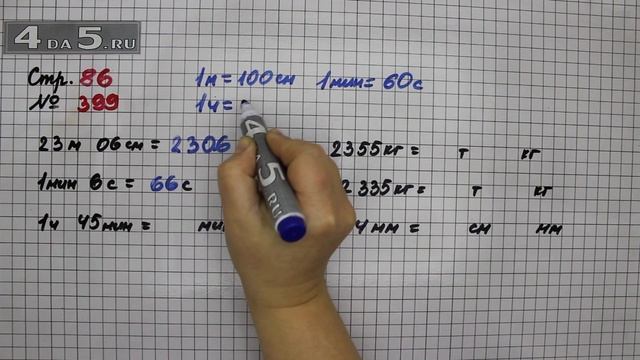 4DA5.RU
Стр. 86 1м = 100 см 1мин = 60 с
№ 399 1ч =
23 м 06 см = 2306 2355 кг = т кг
1мин 6 с = 66 с 2 335 кг = т кг
1ч 45 мин = ми 4 мм = см мм
4DA5.RU